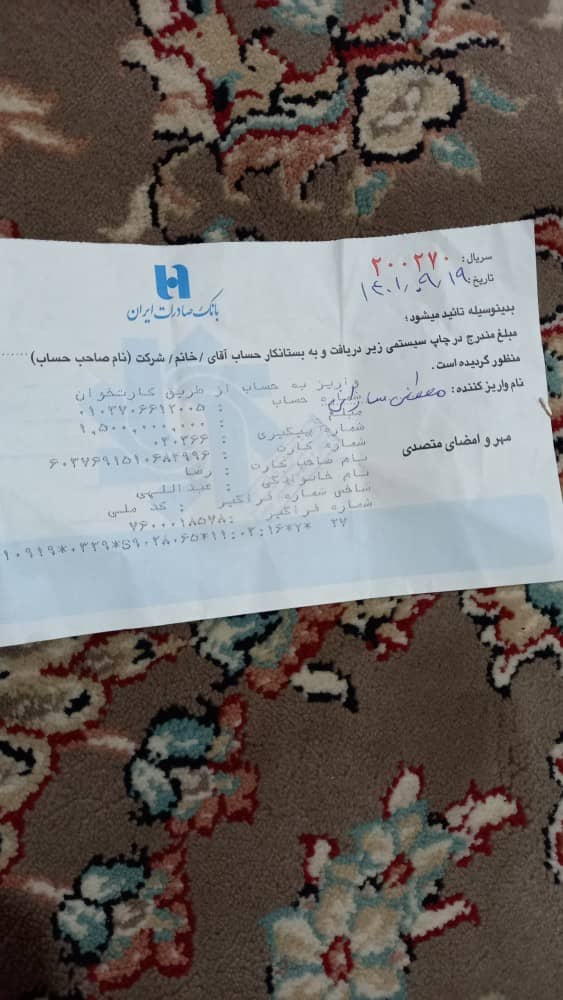 بانک صادرات ایران
سریال: ۲۰۰۲۷۰
تاریخ: ۱۴۰۱/۰۹/۱۹
بدینوسیله تائید میشود؛
مبلغ مندرج در چاپ سیستمی زیر دریافت و به بستانکار حساب آقای / خانم / شرکت (نام صاحب حساب) ......
منظور گردیده است.
نام واریز کننده: مصطفی
واریز به حساب از طریق کارتخوان
شماره حساب : ۰۱۰۳۷۰۶۶۱۲۰۰۵
مبلغ : ۱,۵۰۰,۰۰۰,۰۰۰
شماره پیگیری : ۰۳۰۳۶۶
شماره کارت : ۶۰۳۷۶۹۱۵۱۰۶۸۲۹۹۶
نام صاحب کارت : رضا
نام خانوادگی : عبداللهی
شاخص شماره فراگیر : کد ملی
شماره فراگیر : ۷۶۰۰۰۱۸۵۷۸
۱۰۹۱۹*۰۳۲۹*S۹۰۲۸۰۶۵*۱۱:۰۲:۱۶*۲* ۲۷
مهر و امضای متصدی